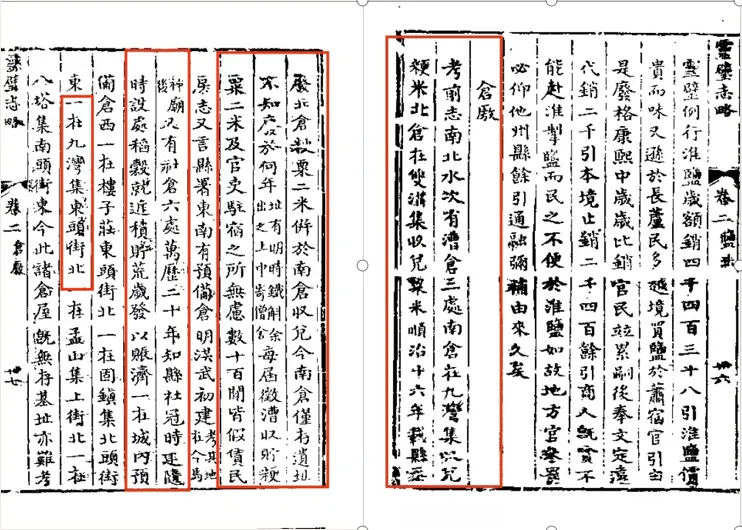 靈璧志略 卷二 鹽法 卅六
靈璧例行淮鹽歲額銷四千四百三十八引淮鹽價
貴而味又遜於長蘆民多越境買鹽於蕭宿官引由
是廢格康熙中歲歲比銷官民竝累嗣後奉文定遠
代銷二千引本境止銷二千四百餘引商人旣資不
能赴淮掣鹽而民之不便於淮鹽如故地方官參罰
必仰他州縣餘引通融彌補由來久矣
倉廒
考前志南北水次有漕倉三處南倉在九灣集以兌
粳米北倉在雙溝集以兌粟米順治十六年裁縣丞
廢北倉粳粟二米併於南倉收兌今南倉僅存遺址
不知廢於何年址有明時鐵斛余出之土中寄僧舍每屆徵漕收貯粳
粟二米及官吏駐宿之所無慮數十百間皆假僦民
房志又言縣署東南有預備倉明洪武初建考其地在今馬
神廟後又有社倉六處萬歷二十年知縣杜冠時建隨
時設處稻穀就近積貯荒歲發以賑濟一在城內預
備倉西一在樓子莊東頭街北一在固鎮集北頭街
東一在九灣集東頭街北一在孟山集上街北一在
八塔集南頭街東今此諸倉屋旣無存基址亦難考
靈璧志略 卷二 倉廒 卅七